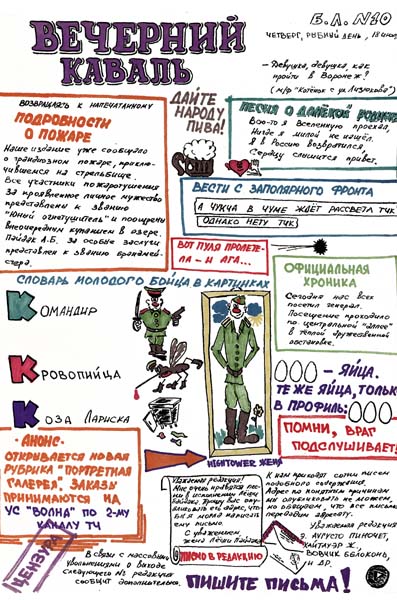 Б.Л. №10
ВЕЧЕРНИЙ
КАВАЛЬ
ЧЕТВЕРГ, РЫБНЫЙ ДЕНЬ, 18
— Девушка, девушка, как
пройти в Воронеж?
(м/ф "Котёнок с ул. Лизюкова")
ВОЗВРАЩАЯСЬ К НАПЕЧАТАННОМУ
ПОДРОБНОСТИ
О ПОЖАРЕ
Наше издание уже сообщало
о грандиозном пожаре, приклю-
чившемся на стрельбище.
Все участники пожаротушения
За проявленное личное мужество
представлены к званию
"Юный огнетушитель" и поощрены
внеочередным купанием в озере.
Пайдак А.Б. за особые заслуги
представлен к званию брандмей-
стера.
ДАЙТЕ
НАРОДУ
ПИВА!
ПЕСНЯ О ДАЛЁКОЙ РОДИНЕ
Всю-то я Вселенную проехал,
Нигде я милой не нашёл.
Я в Россию возвратился,
Сердцу слышится привет.
ВЕСТИ С ЗАПОЛЯРНОГО ФРОНТА
А ЧУКЧА В ЧУМЕ ЖДЁТ РАССВЕТА ТЧК
ОДНАКО НЕТУ ТЧК
ВОТ ПУЛЯ ПРОЛЕТЕ-
ЛА - И АГА...
СЛОВАРЬ МОЛОДОГО БОЙЦА В КАРТИНКАХ
КОМАНДИР
КРОВОПИЙЦА
КОЗА ЛАРИСКА
HIGHTOWER ЖЕНЯ
ОФИЦИАЛЬНАЯ
ХРОНИКА
Сегодня нас всех
посетил генерал.
Посещение проходило
по центральной "аллее"
в тёплой дружественной
обстановке.
- ЯЙЦА.
ТЕ ЖЕ ЯЙЦА, ТОЛЬКО
В ПРОФИЛЬ:
ПОМНИ, ВРАГ
ПОДСЛУШИВАЕТ!
- АНОНС -
ОТКРЫВАЕТСЯ НОВАЯ
РУБРИКА "ПОРТРЕТНАЯ
ГАЛЕРЕЯ". ЗАКАЗЫ
ПРИНИМАЮТСЯ НА
УС "ВОЛНА" ПО 2-МУ
КАНАЛУ ТЧ
Уважаемая редакция!
Мне очень нравятся песни
в исполнении Лёхи
Пайдака. Прошу Вас опу-
бликовать его адрес, что-
бы я могла написать
ему письмо.
С уважением,
жена Лёхи Пайдака.
ПИСЬМО В РЕДАКЦИЮ
К нам приходят сотни писем
подобного содержания.
Адрес по понятным причинам
мы опубликовать не можем,
но обещаем, что все письма
передадим адресату.
Уважаемая редакция
АУГУСТО ПИНОЧЕТ,
ХАЙТАУЭР Ж.,
ВОВЧИК
И ДР.
ЦЕНЗУРА
В связи с массовыми
увольнениями о выходе
следующего № редакция
сообщит дополнительно.
ПИШИТЕ ПИСЬМА!